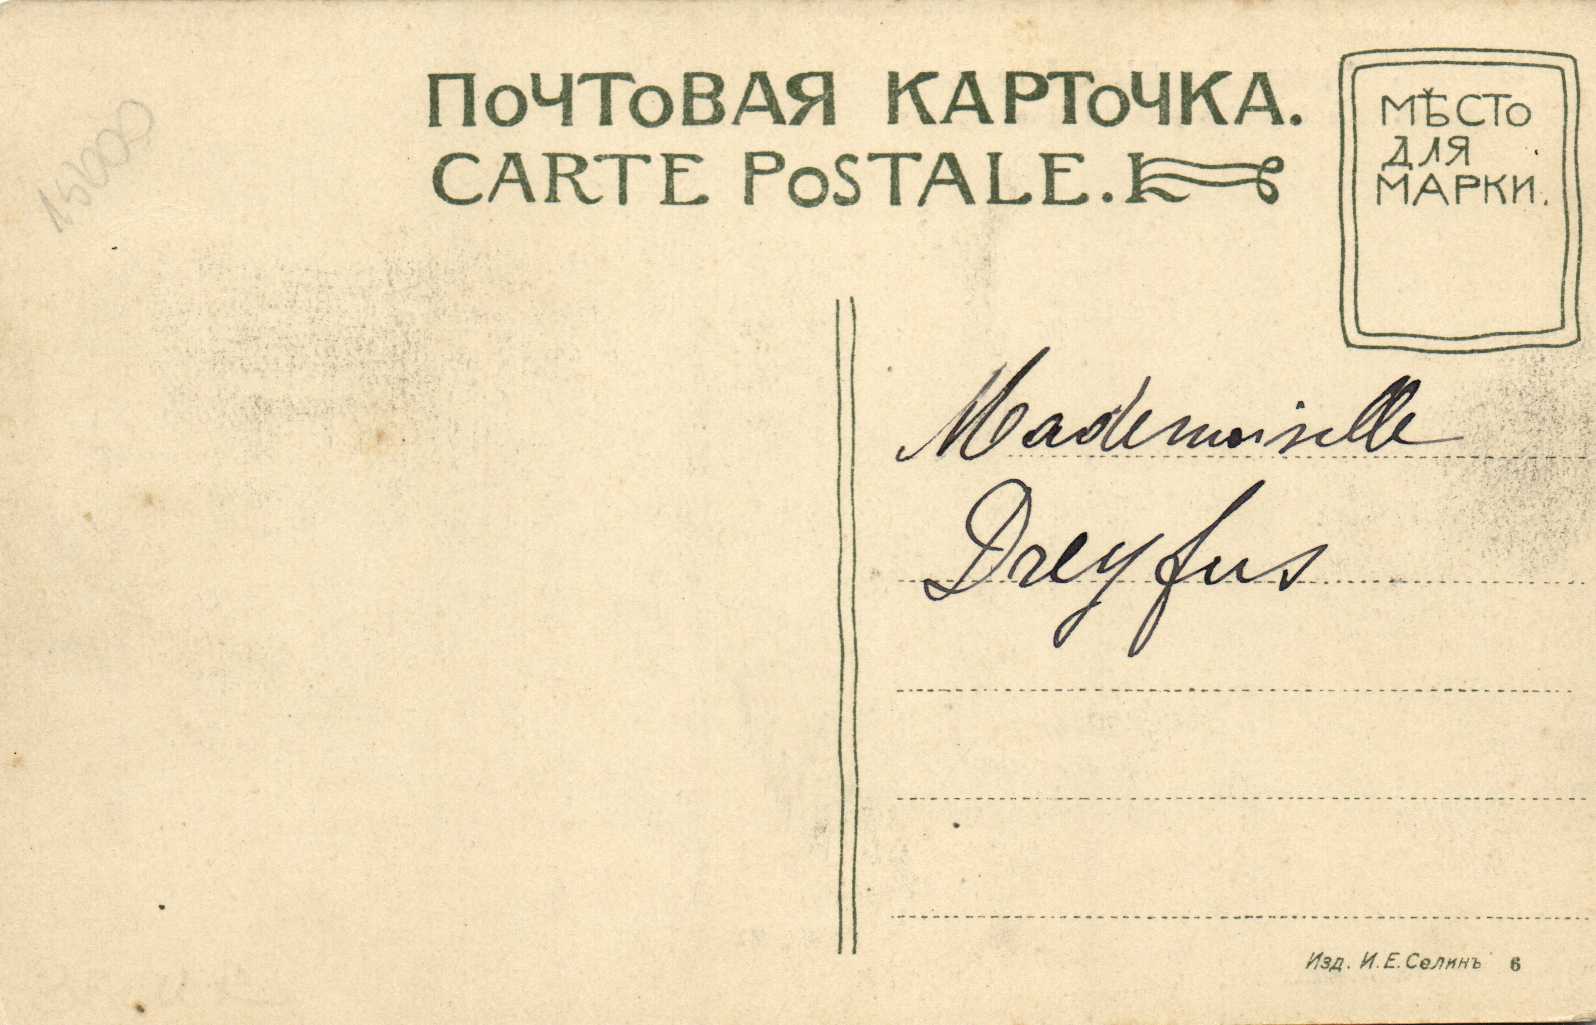 ПОЧТОВАЯ КАРТОЧКА.
CARTE POSTALE.
МѢСТО
ДЛЯ
МАРКИ.
15000
Mademoiselle
Dreyfus
Изд. И. Е. Селинъ 6